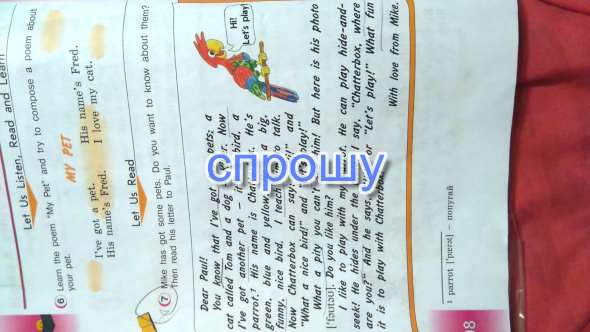 Let Us Listen, Read and Learn
6 Learn the poem "My Pet" and try to compose a poem about
your pet.
MY PET
I've got a pet. His name's Fred.
His name's Fred. I love my cat.
Let Us Read
7 Mike has got some pets. Do you want to know about them?
Then read his letter to Paul.
Hi!
Let's play
Dear Paul!
You know that I've got pets: a
cat called Tom and a dog Now
I've got another pet – bird, a
parrot.¹ His name is He's
green, blue and yellow, a big,
funny, nice bird. I teach talk.
Now Chatterbox can say: and
"What a nice bird!" and play!"
What a pity you can't him! But here is his photo
['fəʊtəʊ]. Do you like him?
I like to play with my He can play hide-and-
seek! He hides under the I say, "Chatterbox, where
are you?" And he says, or "Let's play!" What fun
it is to play with Chatterbox
With love from Mike.
¹ parrot ['pærət] — попугай
8
спрошу